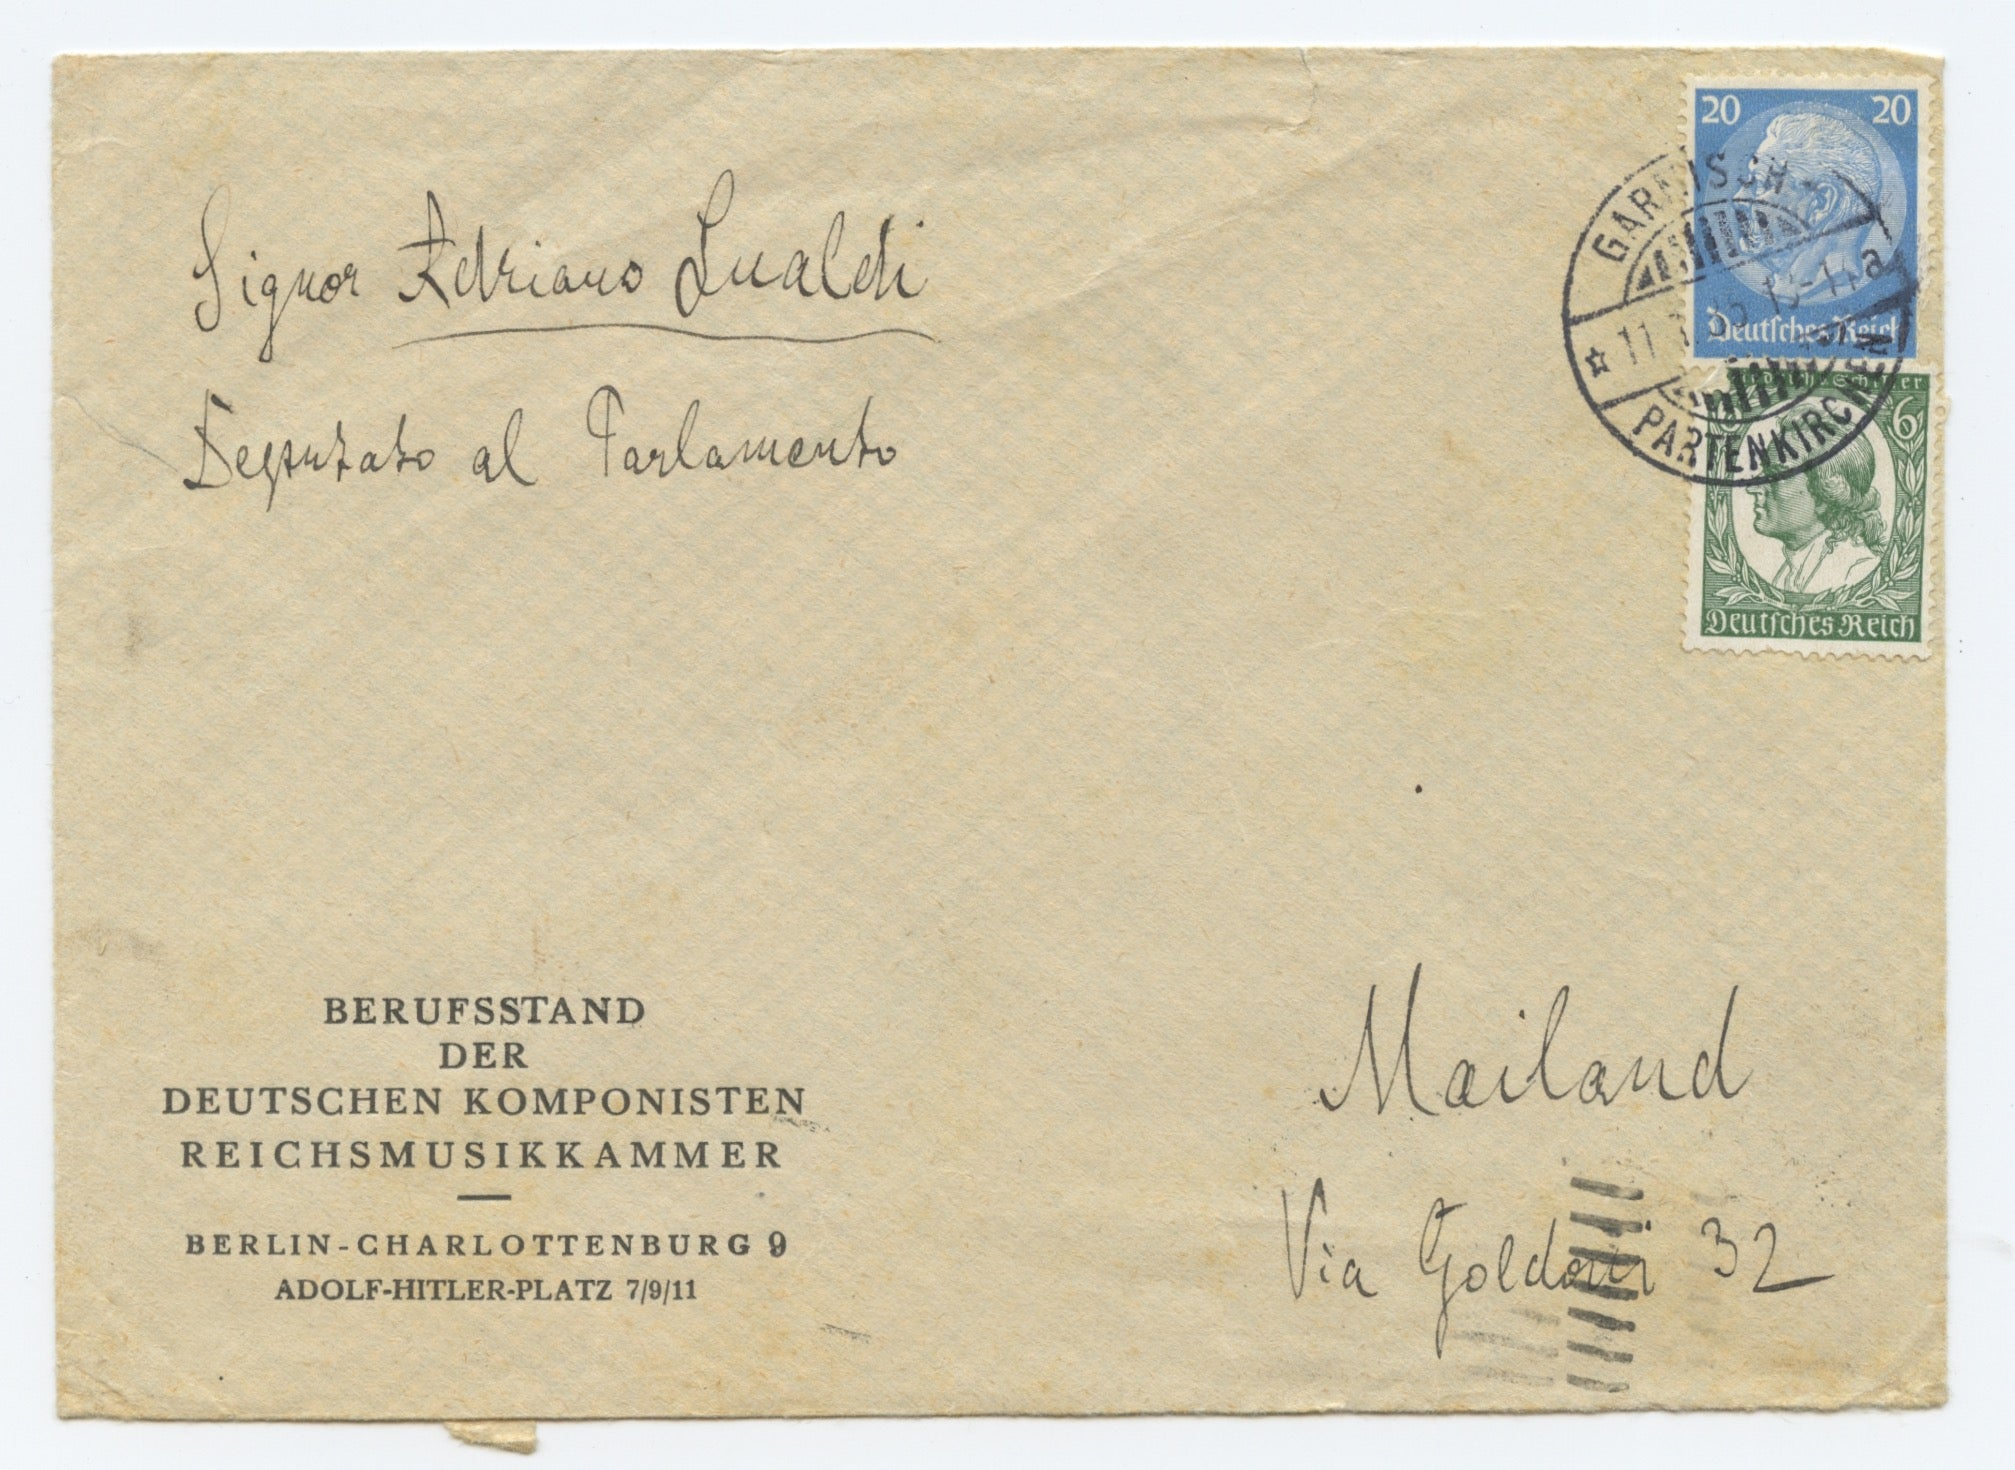 Signor Adriano Lualdi
Deputato al Parlamento
20 20
Deutsches Reich
GARMISCH-
PARTENKIRCHEN
6
Deutsches Reich
BERUFSSTAND
DER
DEUTSCHEN KOMPONISTEN
REICHSMUSIKKAMMER
BERLIN-CHARLOTTENBURG 9
ADOLF-HITLER-PLATZ 7/9/11
Mailand
Via Goldoni 32